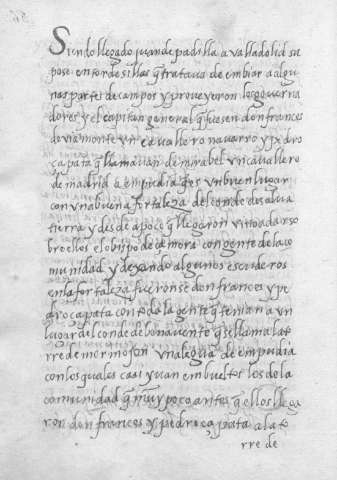 Siendo llegado juan de padilla a valladolid su
pose en tordesillas q̄ trataua de embiar a algu
nas partes de campos y proueyeron los gouerna
dores y el capitan general q̄ fuesen don frances
de viamonte vn cauallero nauarro y pedro
çapata q̄ llamauan de mirabel vn cauallero
de madrid a empudia q̄ es vn buen lugar
con vna buena fortaleza del conde de saluatierra
tierra y desde a poco q̄ llegaron vino a dar so
bre ellos el obispo de çamora con gente de la co
munidad y dexando algunos escuderos
en la fortaleza fueronse don frances y pe
dro çapata con toda la gente q̄ tenian a vn
lugar del conde de benauente q̄ se llama la to
rre de mormojon vna legua de empudia
con los quales casi yuan embueltos los de la
comunidad q̄ muy poco antes q̄ ellos llega
ron don frances y pedro çapata a la to
rre de